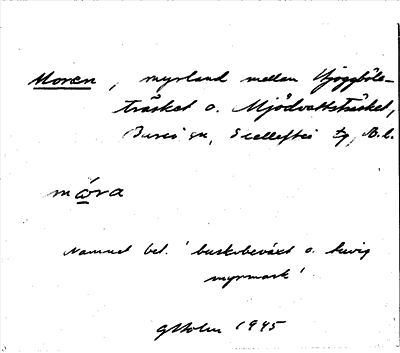 Moren, myrland mellan Sjöggböle-
träsket o. Mjödvattsträsket,
Bureå sn, Skellefteå tg, B.l.
móra
Namnet bet. 'buskbeväxt o.
myrmark'
GHolm 1945